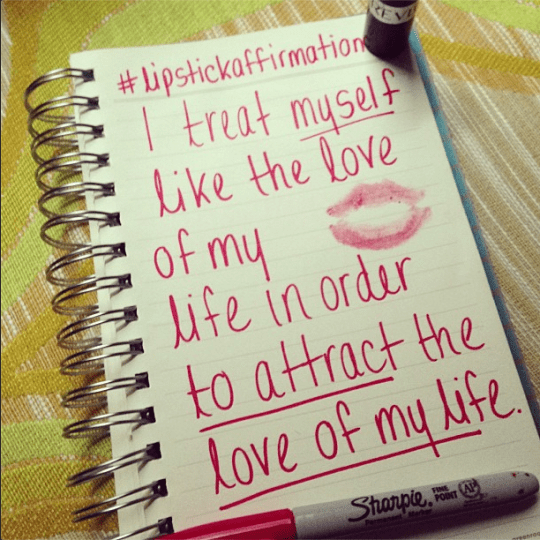 #lipstickaffirmation
I treat myself
like the love
of my
life in order
to attract the
love of my life.
REVL
Sharpie.
FINE POINT
AP
Permanent Marker